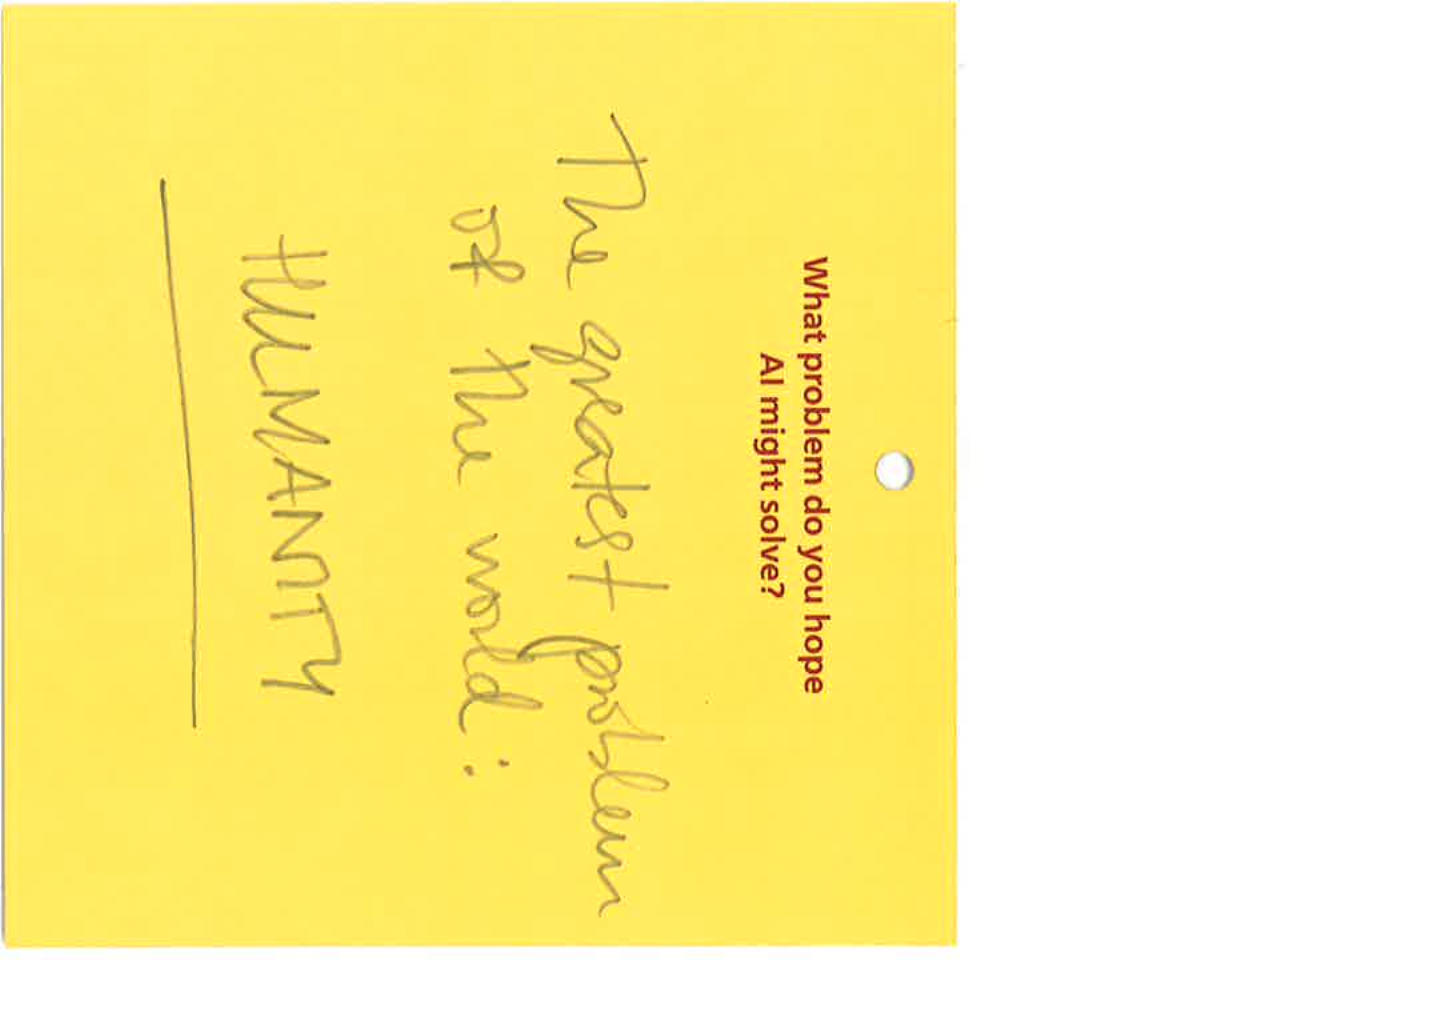 What problem do you hope
AI might solve?
The greatest problem
of the world:
HUMANITY